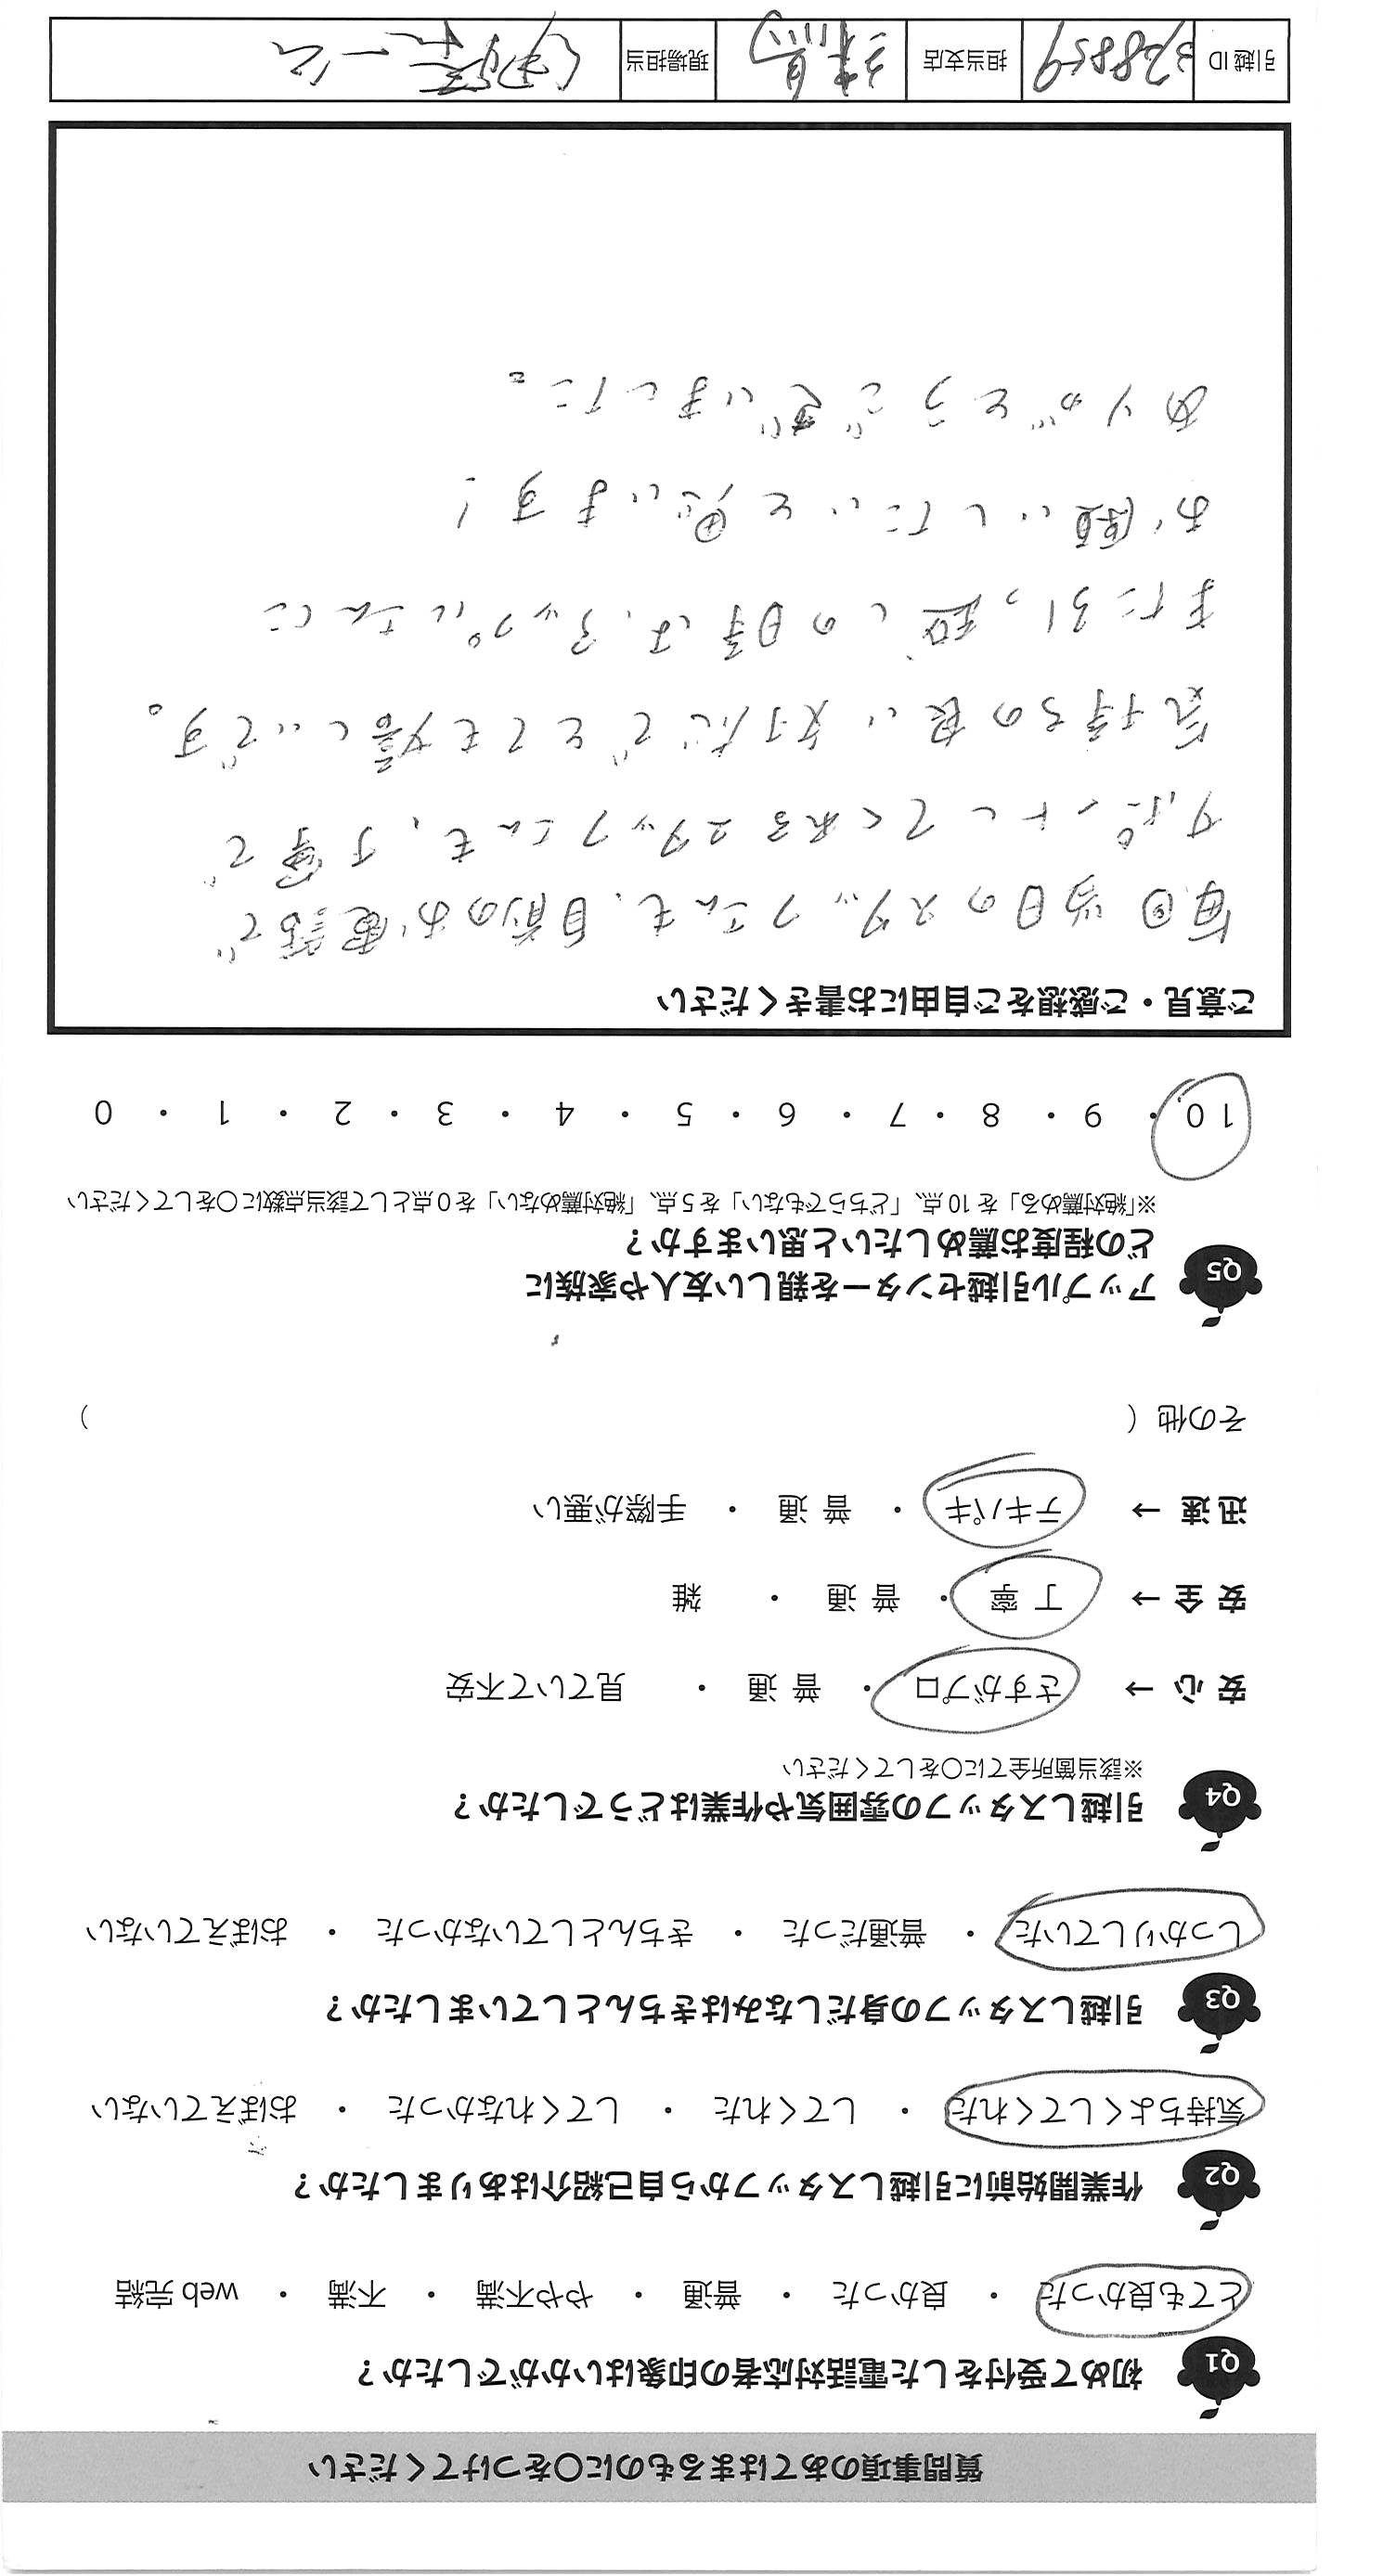 質問事項のあてはまるものに○をつけてください
Q1 初めて受付をした電話対応者の印象はいかがでしたか？
とても良かった ・ 良かった ・ 普通 ・ やや不満 ・ 不満 ・ web 完結
Q2 作業開始前に引越しスタッフから自己紹介はありましたか？
気持ちよくしてくれた ・ してくれた ・ してくれなかった ・ おぼえていない
Q3 引越しスタッフの身だしなみはきちんとしていましたか？
しっかりしていた ・ 普通だった ・ きちんとしていなかった ・ おぼえていない
Q4 引越しスタッフの雰囲気や作業はどうでしたか？
※該当箇所全てに○をしてください
安 心 → さすがプロ ・ 普 通 ・ 見ていて不安
安 全 → 丁 寧 ・ 普 通 ・ 雑
迅 速 → テキパキ ・ 普 通 ・ 手際が悪い
その他（ ）
Q5 アップル引越センターを親しい友人や家族に
どの程度お薦めしたいと思いますか？
※「絶対薦める」を 10 点、「どちらでもない」を 5 点、「絶対薦めない」を 0 点として該当点数に○をしてください
10 ・ 9 ・ 8 ・ 7 ・ 6 ・ 5 ・ 4 ・ 3 ・ 2 ・ 1 ・ 0
ご意見・ご感想をご自由にお書きください
毎回当日のスタッフさんも、目前のお電話で
サポートしてくれるスタッフさんも、丁寧で
気持ちの良い方だでとても嬉しいです。
また引っ越しの時は、アップルさんに
お願いしたいと思います！
ありがとうございました。
引越 ID 3388859 担当支店 練馬 現場担当